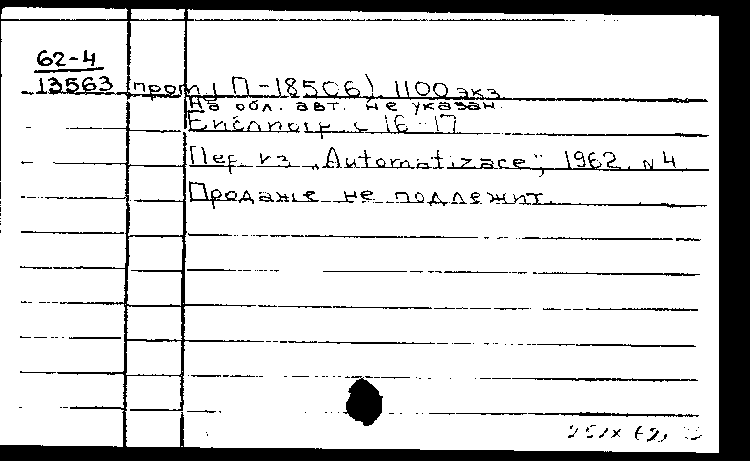 62-4
13563 пром.( П-18506). 1100 экз.
На обл. авт. не указан.
Библиогр. с 16-17
Пер. из „Automatizace", 1962, N 4
Продаже не подлежит.